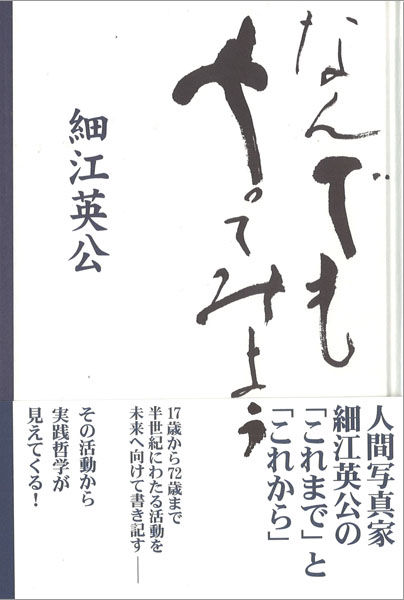 なんでも
やってみよう
細江英公
人間写真家
細江英公の
「これまで」と
「これから」
17歳から72歳まで
半世紀にわたる活動を
未来へ向けて書き記す――
その活動から
実践哲学が
見えてくる！